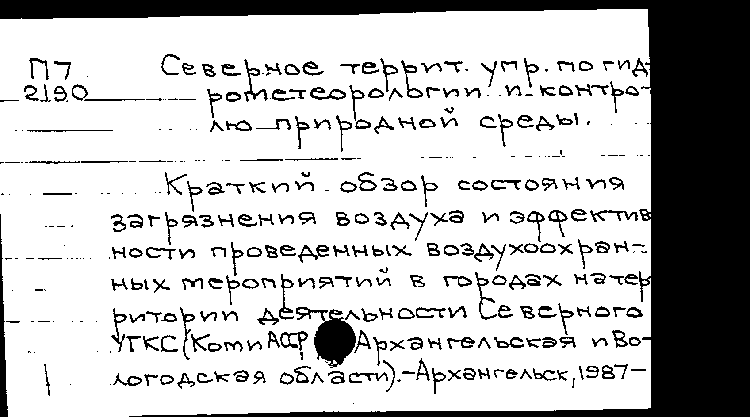 П7 Северное террит. упр. по гид-
2190 рометеорологии и контро-
лю природной среды.
Краткий обзор состояния
загрязнения воздуха и эффектив
ности проведенных воздухоохран-
ных мероприятий в городах на тер
ритории деятельности Северного
УГКС (Коми АССР, Архангельская и Во-
логодская области).-Архангельск, 1987-